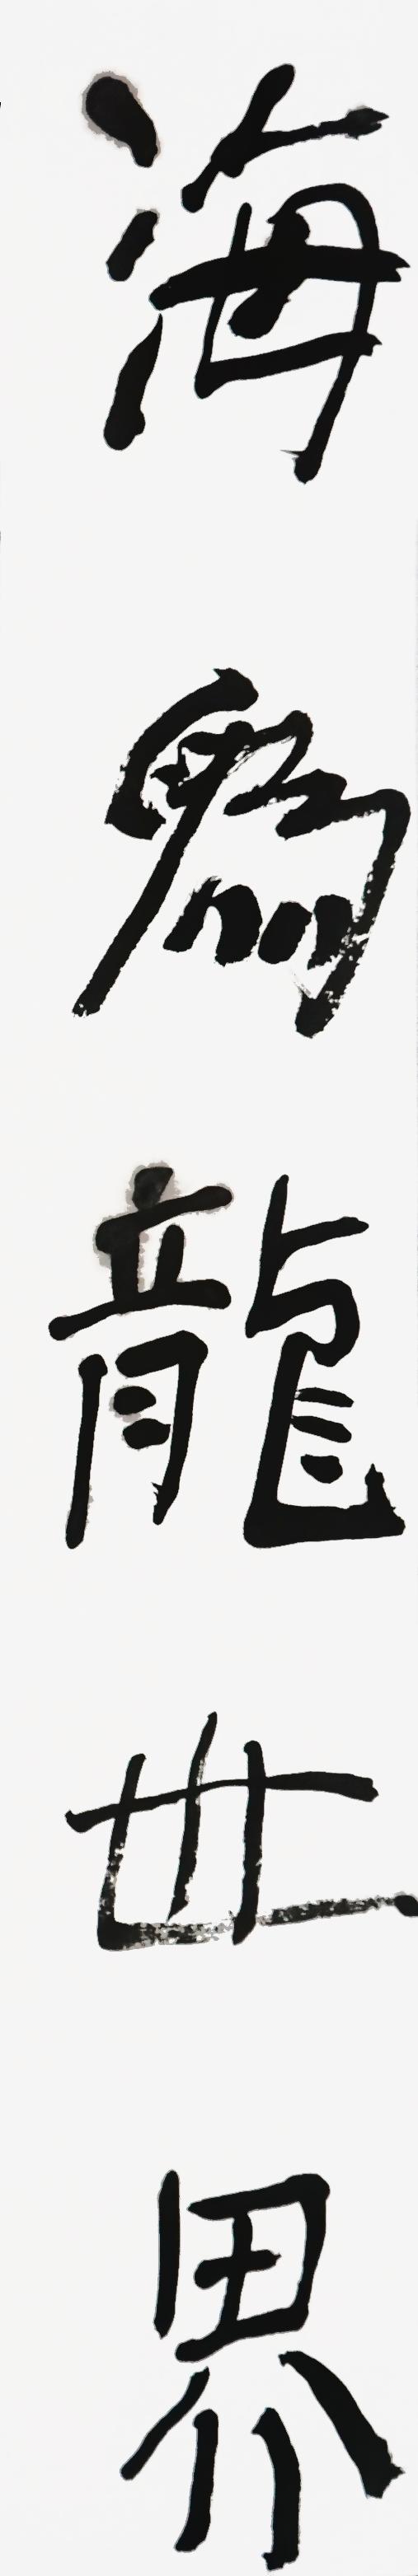 海為龍世界